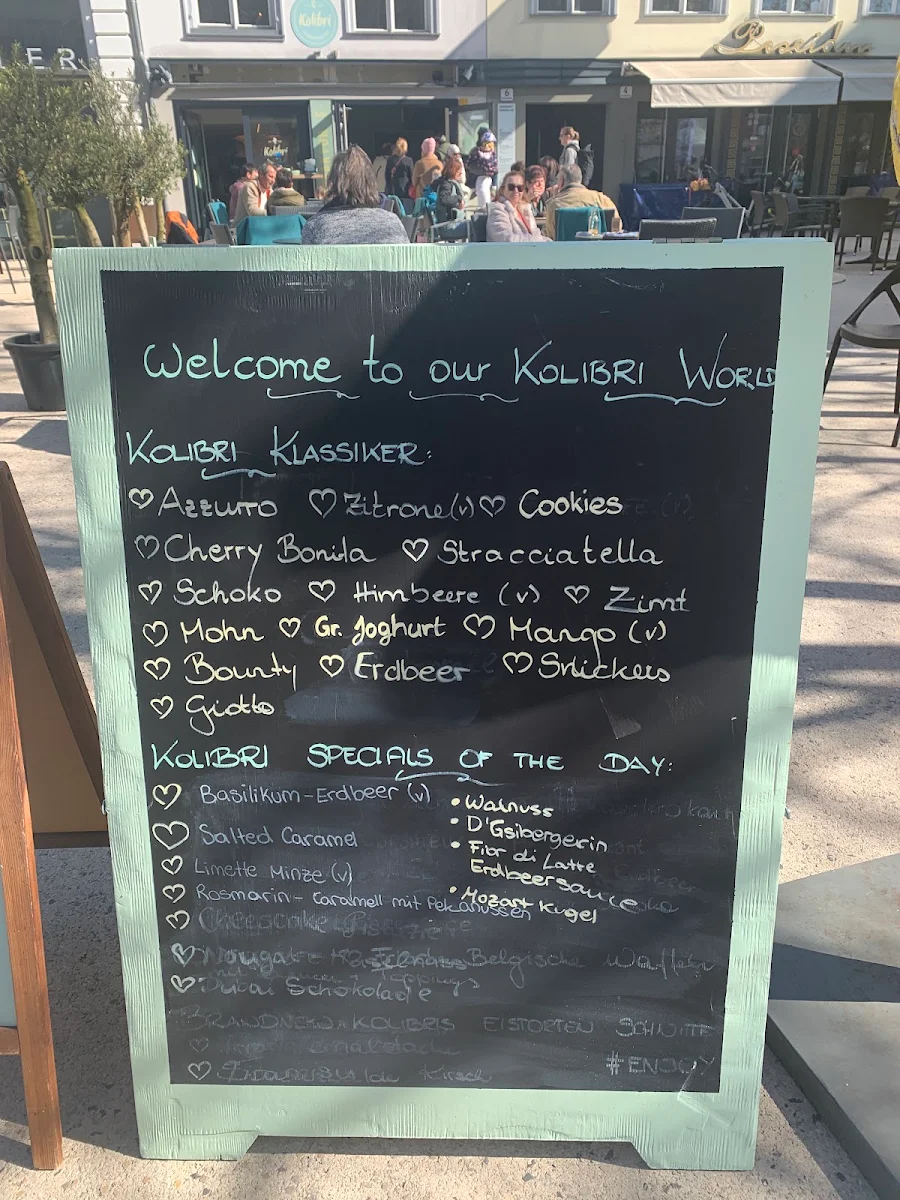 Kolibri
LER
6
4
Kolibri
Welcome to our KOLIBRI WORLD
KOLIBRI KLASSIKER:
♡ Azzurro ♡ Zitrone (v) ♡ Cookies
♡ Cherry Bonita ♡ Stracciatella
♡ Schoko ♡ Himbeere (v) ♡ Zimt
♡ Mohn ♡ Gr. Joghurt ♡ Mango (v)
♡ Bounty ♡ Erdbeer ♡ Snickers
♡ Giotto
KOLIBRI SPECIALS OF THE DAY:
♡ Basilikum-Erdbeer (v)
♡ Salted Caramel
♡ Limette Minze (v)
♡ Rosmarin-Caramell mit Pekanüssen
• Walnuss
• D'Gsibergerin
• Fior di Latte
Erdbeersauce
• Mozart Kugel
♡ Cheesecake
♡ Nougat Belgische Waffeln
♡ Dubai Schokolade
BRANDNEW KOLIBRIS EISTORTEN SCHNITTE
♡ Kirsch
#ENJOY